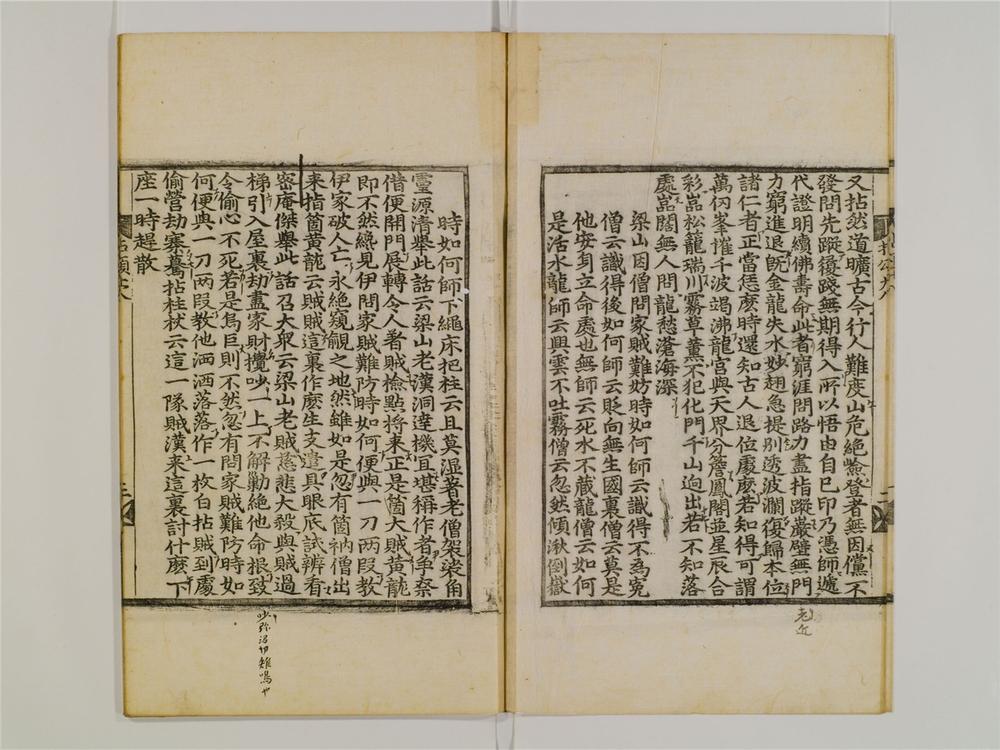 又拈然道曠古今行人難度山危絶險登者無因儻不
發問先蹤後踐無期得入所以悟由自己印乃憑師遞
代證明續佛壽命此者窮涯問路力盡指蹤巖壁無門
力窮進退既金龍失水妙翅急提別透波瀾復歸本位
諸仁者正當恁麽時還知古人退位處麽若知得可謂
萬仞峯摧千波竭沸龍宮與天界分簷鳳閣並星辰合
彩嵓松籠瑞川霧草薫不犯化門千山逈出若不知落
處嵓闊無人問龍愁滄海深
梁山因僧問家賊難妨時如何師云識得不為寃
僧云識得後如何師云貶向無生國裏僧云莫是
他安身立命處也無師云死水不蔵龍僧云如何
是活水龍師云興雲不吐霧僧云忽然傾湫倒嶽
老丘
時如何師下繩床把柱云且莫濕著老僧袈裟角
靈源清擧此話云梁山老漢洞達機冝堪稱作者爭奈
借便開門展轉令人著賊檢點將来正是箇大賊黄龍
即不然纔見伊問家賊難防時如何便與一刀兩段教
伊家破人亡永絶窺覦之地然雖如是忽有箇衲僧出
来指箇黄龍云賊賊這裏作麽生支遣具眼底試辨看
密庵傑擧此話召大衆云梁山老賊慈悲大殺與賊過
梯引入屋裏劫盡家財攪吵一上不解勦絶他命根致
令偷心不死若是烏巨則不然忽有問家賊難防時如
何便與一刀兩段教他洒洒落落作一枚白拈賊到處
偷營劫寨驀拈柱杖云這一隊賊漢来這裏討什麽下
座一時趂散
吵弥沼切雉鳴也